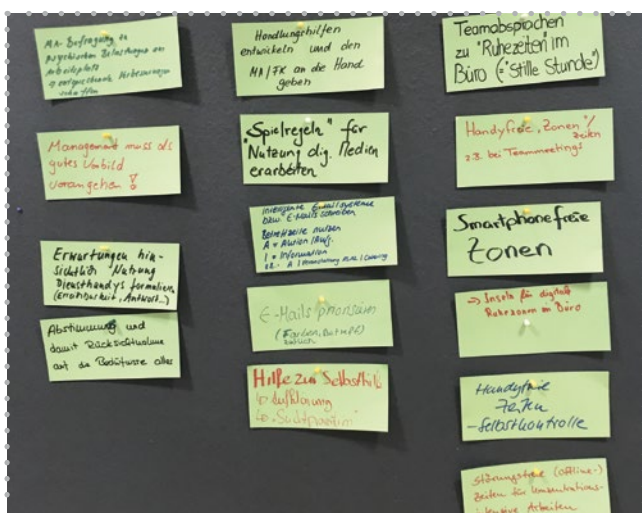 MA-Befragung zu
psychischen Belastungen am
Arbeitsplatz
entsprechende Verbesserungen
schaffen
Management muss als
gutes Vorbild
vorangehen!
Erwartungen hin-
sichtlich Nutzung
Diensthandys formulieren
(Erreichbarkeit, Antwort...)
Abstimmung und
damit Rücksichtnahme
auf die Bedürfnisse aller
Handlungshilfen
entwickeln und den
MA/FK an die Hand
geben
"Spielregeln" für
"Nutzung dig. Medien
erarbeiten"
E-Mailsysteme
bzw. E-Mails schreiben
Betreffzeile nutzen
A = Aktion
I = Information
E-Mails priorisieren
(Farben,
Hilfe zur Selbsthilfe
Aufklärung
Teamabsprachen
zu "Ruhezeiten" im
Büro (="Stille Stunde")
Handyfreie "Zonen"/
Zeiten
z.B. bei Teammeetings
Smartphonefreie
Zonen
→ Inseln für digitale
Ruhezonen im Büro
Handyfreie
Zeiten
-Selbstkontrolle
störungsfreie (offline-)
Zeiten für konzentrations-
intensive Arbeiten